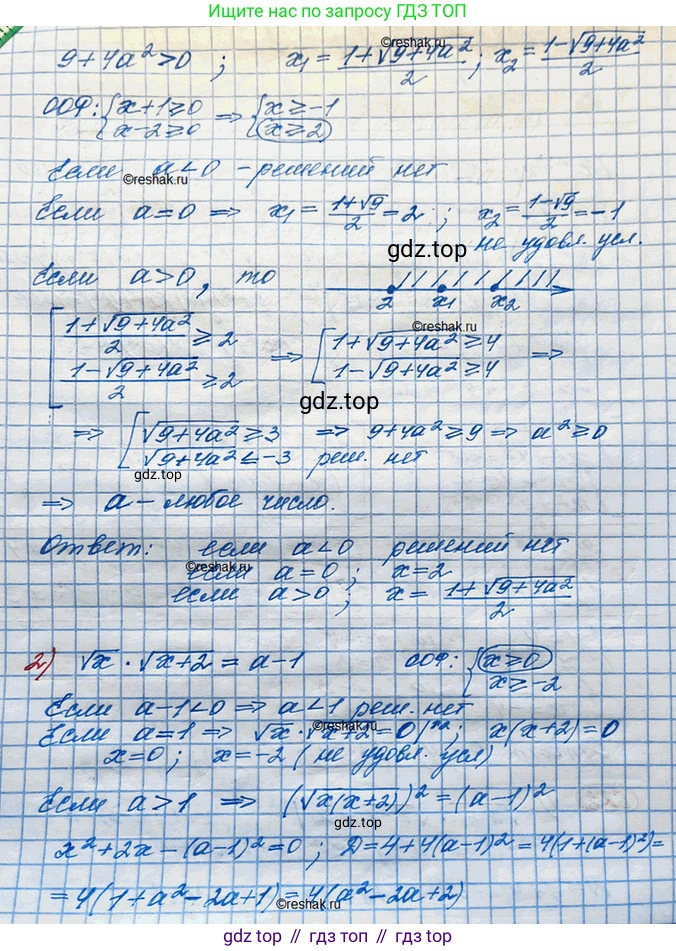 Ищите нас по запросу ГДЗ ТОП
9+4a²>0 ; x₁ = (1+√(9+4a²))/2 ; x₂ = (1-√(9+4a²))/2
©reshak.ru
ООФ: { x+1≥0 x-2≥0 => { x≥-1 x≥2
Если a<0 - решений нет
©reshak.ru
Если a=0 => x₁ = (1+√9)/2 = 2 ; x₂ = (1-√9)/2 = -1
не удовл. усл.
gdz.top
Если a>0, то 2 x₁ x₂
[ (1+√(9+4a²))/2 ≥ 2 (1-√(9+4a²))/2 ≥ 2 => [ 1+√(9+4a²) ≥ 4 1-√(9+4a²) ≥ 4 =>
©reshak.ru
gdz.top
=> [ √(9+4a²) ≥ 3 => 9+4a² ≥ 9 => a² ≥ 0
√(9+4a²) ≤ -3 реш. нет
gdz.top
=> a - любое число.
Ответ: если a<0 решений нет
©reshak.ru
если a=0 ; x=2
если a>0 ; x = (1+√(9+4a²))/2
2) √x · √(x+2) = a-1 ООФ: { x≥0 x≥-2
Если a-1<0 => a<1 реш. нет
Если a=1 => √x · √(x+2) = 0 |^2 ; x(x+2)=0
©reshak.ru
x=0 ; x=-2 (не удовл. усл)
Если a>1 => (√(x(x+2)))² = (a-1)²
gdz.top
x²+2x-(a-1)²=0 ; D=4+4(a-1)² = 4(1+(a-1)²)=
=4(1+a²-2a+1)=4(a²-2a+2)
©reshak.ru
gdz top // гдз топ // gdz.top